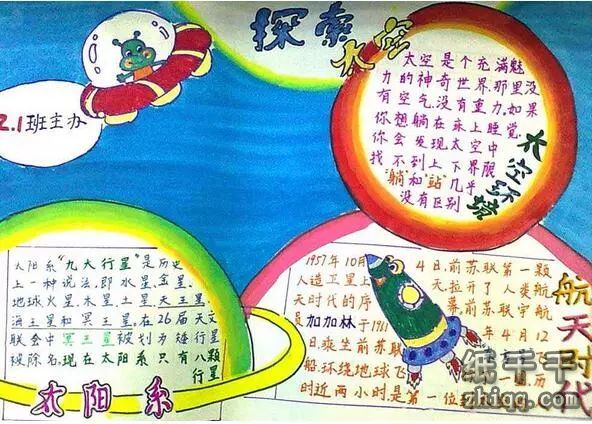 探索太空
2.1班主办
太空是个充满魅
力的神奇世界,那里没
有空气,没有重力.如果
你想躺在床上睡觉,
你会发现太空中
找不到上下界限
"躺"和"站"几乎
没有区别
太空环境
太阳系"九大行星"是历史
上一种说法,即水星、金星、
地球火星、木星、土星、天王星、
海王星和冥王星。在26届天文
联会中冥王星被划为矮行星
被除名。现在太阳系只有八颗
行星
太阳系
1957年10月4日,前苏联第一颗
人造卫星上天拉开了人类航
天时代的序幕,前苏联宇航
员加加林于1911年4月12
日,乘坐前苏联
船、环绕地球飞
时近两小时,是第一位
航天时代
纸千千
zhiqq.com